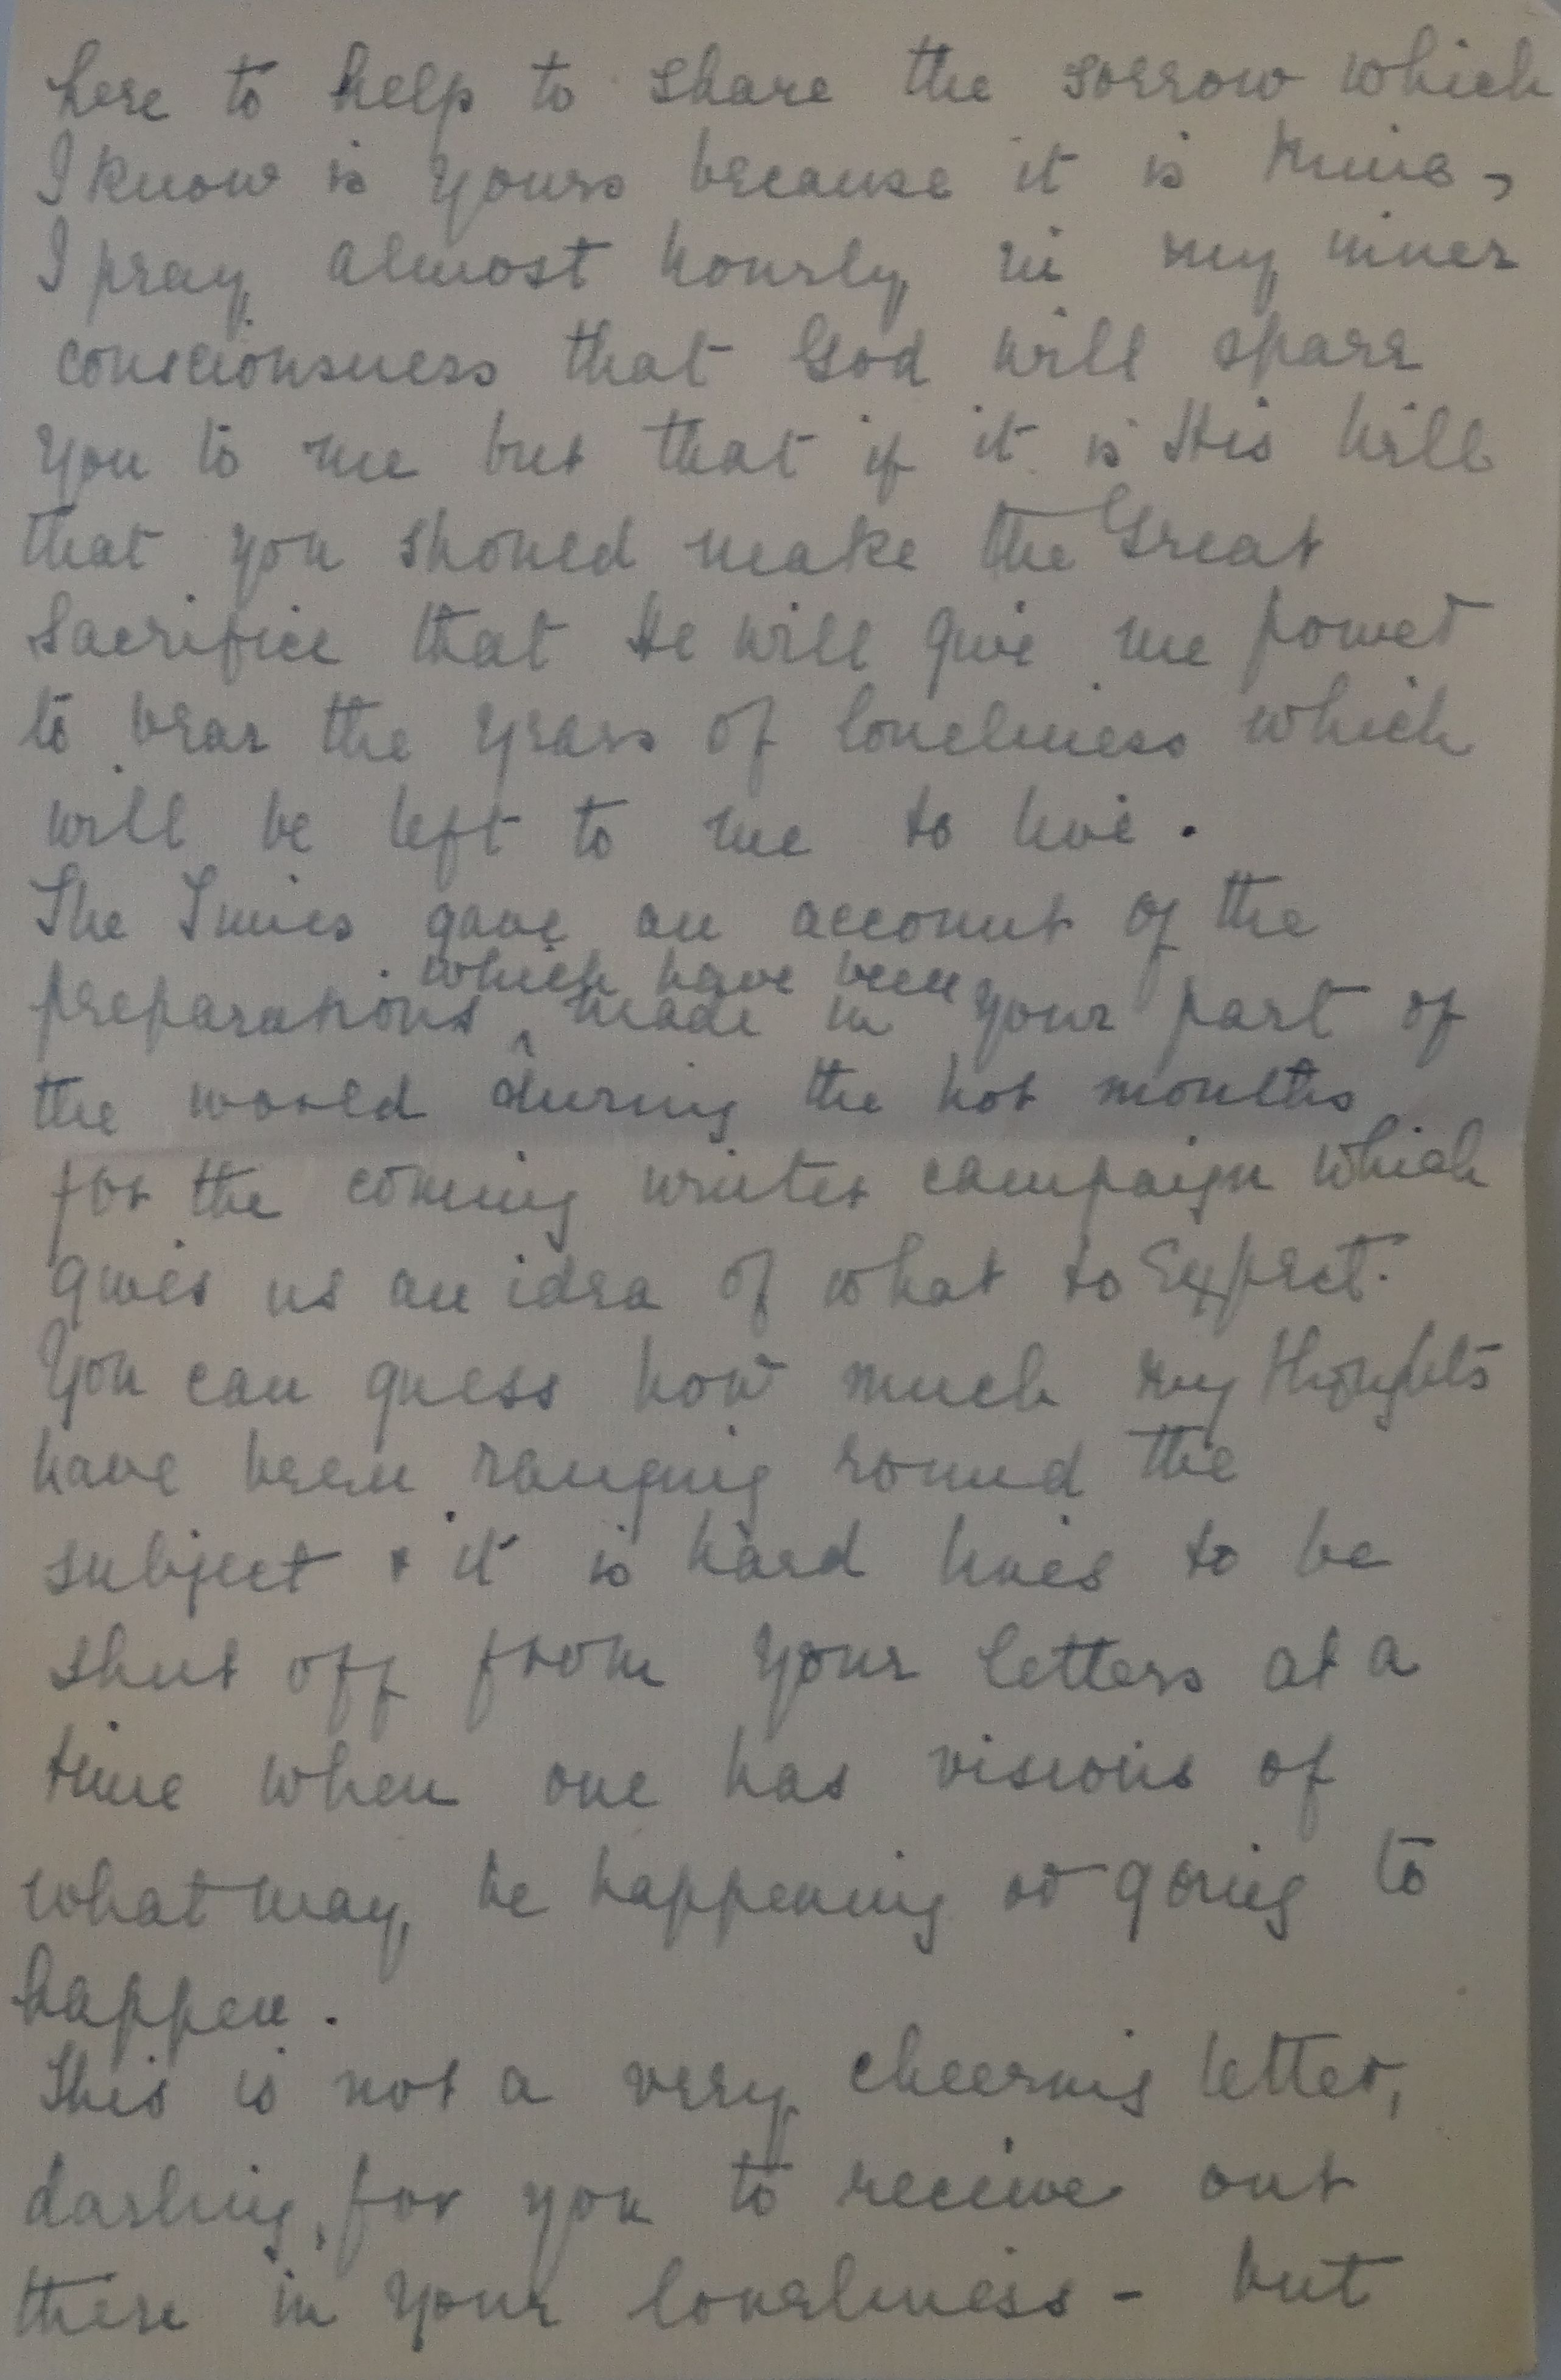 here to help to share the sorrow which
I know is yours because it is mine,
I pray almost hourly in my inner
consciousness that God will spare
you to me but that if it is His will
that you should make the Great
Sacrifice that He will give me power
to bear the years of loneliness which
will be left to me to live.
The Times gave an account of the
which have been
preparations ^ made in your part of
the world during the hot months
for the coming winter campaign which
gives us an idea of what to Expect.
You can guess how much my thoughts
have been ranging round the
subject & it is hard lines to be
shut off from your letters at a
time when one has visions of
what may be happening or going to
happen.
This is not a very cheering letter,
darling, for you to receive out
there in your loneliness - but